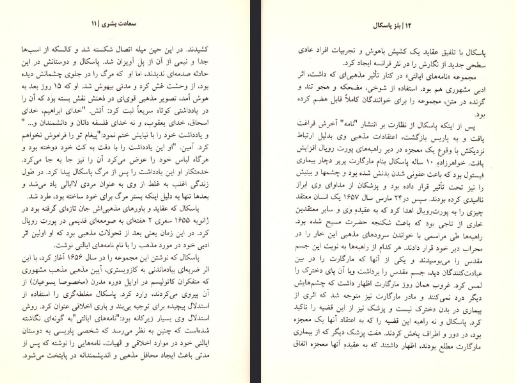 سعادت بشری | ۱۱
کشیدند. در این حین میله اتصال شکسته شد و کالسکه از اسب‌ها
جدا و نیمی از آن از پل آویزان شد. پاسکال و دوستانش در این
حادثه صدمه‌ای ندیدند، اما او که مرگ را در جلوی چشمانش دیده
بود، از وحشت غش کرد و مدتی بیهوش شد. او که ۱۵ روز بعد به
هوش آمد، تصویر مذهبی قوی‌ای در ذهنش نقش بسته بود که آن را
در یادداشتی کوتاه سریعاً ثبت کرد: "آتش. "خدای ابراهیم، خدای
اسحاق، خدای یعقوب، و نه خدای فلسفه دانان و دانشمندان و..."
و یادداشت خود را با نیایش ختم نمود: "پیغام تو را فراموش نخواهم
کرد. آمین. "او این یادداشت را با دقت به کت خود دوخته بود و
هرگاه لباس خود را عوض می‌کرد آن را نیز جا به جا می‌کرد.
خدمتکار او این یادداشت را پس از مرگ پاسکال پیدا کرد. در طول
زندگی اغلب به غلط از وی به عنوان مردی لاابالی یاد می‌شد و
بعدها تنها به دلیل اینکه بستر مرگ برای خود ساخته بود، طرد شد.
پاسکال که عقاید و باورهای مذهبی‌اش جان تازه‌ای گرفته بود در
ژانویه ۱۶۵۵ سفری ۲ هفته‌ای به صومعه‌ای قدیمی در پورت رویال
کرد. در این زمان یعنی بعد از تحولات مذهبی بود که او اولین اثر
ادبی خود در مورد مذهب را با نام نامه‌های ایالتی نوشت.
پاسکال که نوشتن این مجموعه را در سال ۱۶۵۶ آغاز کرد، با این
اثر ضربه‌ای بیادماندنی به کازویستری، آیین مذهبی مذهب مشهوری
که متفکران کاتولیسم در اوایل دوره مدرن (مخصوصا یسوعیان) از
آن پیروی می‌کردند، وارد کرد. پاسکال مغلطه‌گری را استفاده از
استدلال پیچیده برای توجیه بی‌بند و باری اخلاقی عنوان کرد. روش
استدلال وی بسیار زیرکانه بود:"نامه‌های ایالتی" به‌گونه‌ای نگاشته
شده‌است که چنین به نظر می‌رسد که شخصی پاریسی به دوستان
ایالتی خود در موارد اخلاقی و الهیات، نامه‌هایی را نوشته که پس از
مدتی باعث ایجاد محافل مذهبی و اندیشمندانه در پایتخت می‌شود.
۱۲ | بلز پاسکال
پاسکال با تلفیق عقاید یک کشیش باهوش و تجربیات افراد عادی
سطحی جدید از نگارش را در نثر فرانسه ایجاد کرد.
مجموعه «نامه‌های ایالتی» در کنار تأثیر مذهبی‌ای که داشت، اثر
ادبی مشهوری هم بود. استفاده از شوخی، مضحکه و هجو تند و
گزنده در متن، مجموعه را برای خوانندگان کاملاً قابل هضم کرده
بود.
پس از اینکه پاسکال از نظارت بر انتشار "نامه" آخرش فراغت
یافت و به پاریس بازگشت، اعتقادات مذهبی وی بدلیل ارتباط
نزدیکش با وقوع یک معجزه در دیر راهبه‌های پورت رویال افزایش
یافت. خواهرزاده ۱۰ ساله پاسکال بنام مارگارت پریر دچار بیماری
فیستول بود که باعث عفونی شدن بدنش شده بود و چشمها و بینیش
را نیز تحت تأثیر قرار داده بود و پزشکان از مداوای وی ابراز
ناامیدی کرده بودند. سپس در۲۴ مارس سال ۱۶۵۷ یک انسان معتقد
چیزی را به پورت‌رویال اهدا کرد که به عقیده وی و سایر معتقدین
خاری از تاجی بود که باعث شکنجه حضرت مسیح شده بود.
راهبه‌ها طی مراسمی با خواندن سرودهای مذهبی این خار را در
محراب دیر خود قرار دادند. هر کدام از راهبه‌ها به نوبت این جسم
مقدس را می‌بوسیدند و یکی از آنها که مارگارت را در بین
عبادت‌کنندگان دید، جسم مقدس را برداشت وبا آن پای دخترک را
لمس کرد. غروب همان روز مارگارت اظهار داشت که چشم‌هایش
دیگر درد نمی‌کنند و مادر مارگارت نیز متوجه شد که اثری از
بیماری در بدن دخترک نیست و پزشک نیز از این قضیه را تاکید
کرد. پاسکال و نه راهبه این قضیه را که به اعتقاد آنها یک معجزه
بود، در دور و اطراف پخش کردند. هفت پزشک دیگر که از بیماری
مارگارت مطلع بودند، اظهار داشتند که به عقیده آنها معجزه اتفاق